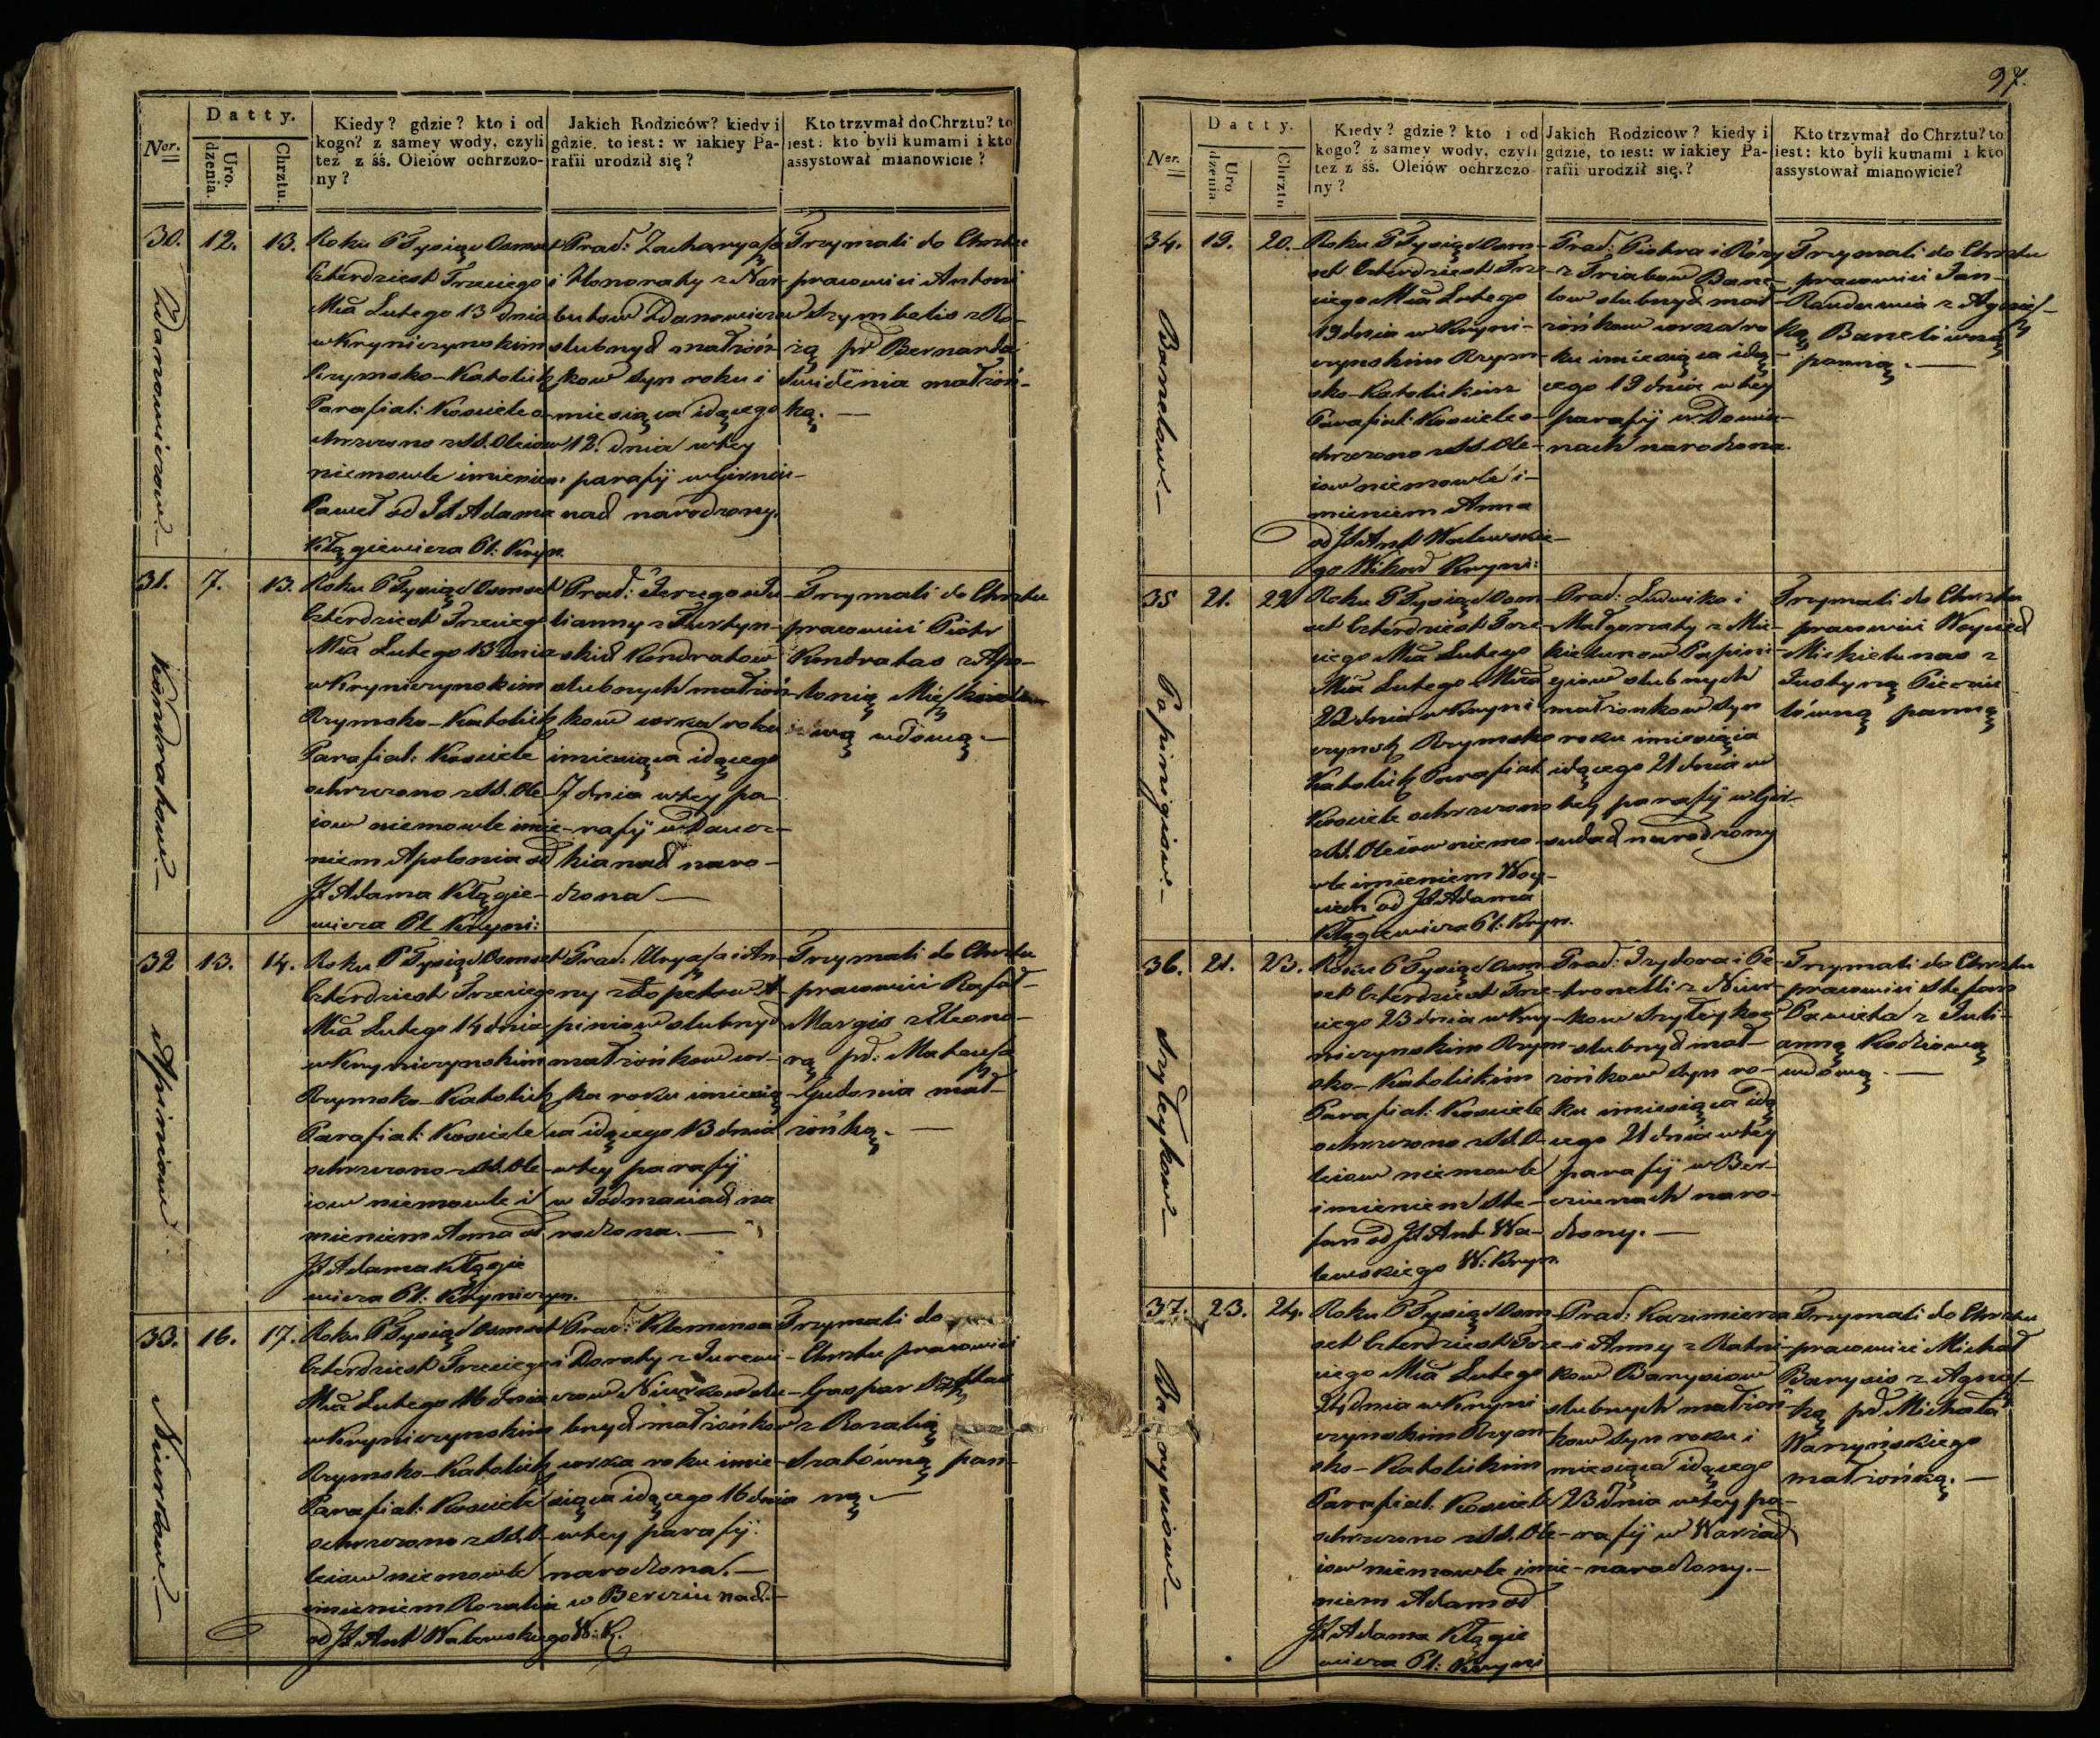 97.
Datty.
Ner.
Uro.
dzenia.
Chrztu.
Kiedy? gdzie? kto i od
kogo? z samey wody, czyli
też z śś. Oleiów ochrzczo-
ny?
Jakich Rodziców? kiedy i
gdzie, to iest: w iakiey Pa-
rafii urodził się?
Kto trzymał do Chrztu? to
iest: kto byli kumami i kto
assystował mianowicie?
30.
12.
13.
Zdanowiczow.—
Roku Tysiąc Osmset
Czterdziest Trzeciego
Mca Lutego 13 dnia
w Kryniczynskim
Rzymsko-Katolick
Parafial: Kosciele o-
chrzczono z SS. Oleiow
niemowle imieniem
Paweł od Adama
Kłągiewicza Pl: Kryn.
Prad: Zacharyasza
i Honoraty z Nar-
butow Zdanowiczow
slubnych małżoń-
kow syn roku i
miesiąca idącego
12. dnia w tey
parafij w Girnin-
nach narodzony.
Trzymali do Chrztu
pracowici Antoni
Szymbelis z Ro-
zą pd Bernarda
małżoń-
ką.—
31.
7.
13.
Kondratow.—
Roku Tysiąc Osmset
Czterdziest Trzecieg
Mca Lutego 13 dnia
w Krynieczynskim
Rzymsko-Katolick
Parafial: Kosciele
ochrzczono z SS. Ole-
iow niemowle imie-
niem Apolonia od
Adama Kłągie-
wicza Pl Kryni:
Prad: Jerzego i Ju-
lianny z Justyn-
skich Kondratow
slubnych małżoń-
kow corka roku
i miesiąca idącego
7 dnia w tey pa-
rafij w Dawcz-
kianach naro-
dzona—
Trzymali do Chrztu
pracowici Piotr
Kondratas z Apo-
lonią
wdową.—
32
13.
14.
Apiniow
Roku Tysiąc Osmset
Czterdziest Trzeciego
Mca Lutego 14 dnia
w Krynieczynskim
Rzymsko-Katolick
Parafial: Kosciele
ochrzczono z SS. Ole-
iow niemowle i
mieniem Anna od
Adama Kłągie
wicza Pl: Krynieczyn.
Prad: Uryasza i An-
ny z Łopetow A-
piniow slubnych
małżońkow cor-
ka roku i miesią-
ca idącego 13 dnia
w tey parafij
w Jodmaciach na
rodzona.—
Trzymali do Chrztu
pracowici Rafał
Margis z Eleono-
rą pd: Mateusza
Gudonia mał-
żońką.—
33.
16.
17.
Niurkow.—
Roku Tysiąc Osmset
Czterdziest Trzeciego
Mca Lutego 16 dnia
w Krynieczynskim
Rzymsko-Katolick
Parafial: Kosciele
ochrzczono z SS. O-
leiow niemowle
imieniem Rozalia
od Ant Walewskiego W: K.
Prad: Klemensa
i Doroty z Jurewi-
czow Niurkow slu-
bnych małżońkow
corka roku i mie-
siąca idącego 16 dnia
w tey parafij
narodzona.—
w Bercziunach—
Trzymali do
Chrztu pracowici
Gaspar
z Rozalią
Szatówną pan-
ną.—
Datty.
Ner.
Uro
dzenia
Chrztu
Kiedy? gdzie? kto i od
kogo? z samey wody, czyli
też z śś. Oleiów ochrzczo-
ny?
Jakich Rodziców? kiedy i
gdzie, to iest: w iakiey Pa-
rafii urodził się.?
Kto trzymał do Chrztu? to
iest: kto byli kumami i kto
assystował mianowicie?
34.
19.
20.
Banelow.—
Roku Tysiąc Osm-
set Czterdziest Trze-
ciego Mca Lutego
19 dnia w Kryni-
czynskim Rzym-
sko-Katolickim
Parafial: Kosciele o-
chrzczono z SS. Ole-
iow niemowle i-
mieniem Anna
od Ant Walewskie-
go Wikar Kryni:
Prad: Piotra i Rózy
z Triabow Bane-
low slubnych mał-
żońkow corka ro
ku i miesiąca idą-
cego 19 dnia w tey
parafij w Domin-
nach narodzona.
Trzymali do Chrztu
pracowici Jan
z Agnisz-
ką Banelówną
panną.—
35
21.
22
Papinigiow.—
Roku Tysiąc Osm-
set Czterdziest Trze-
ciego Mca Lutego
Mca Lutego Mca
22 dnia w Kryni
czynsk Rzymsko
Katolick Parafial
Kosciele ochrzczono
z SS. Oleiow niemo-
wle imieniem Woy-
ciech od Adama
Kłągiewicza Pl: Kryn.
Prad: Ludwika i
Małgorzaty z Mic-
kielunow Papini-
giow slubnych
małżonkow syn
roku i miesiąca
idącego 21 dnia w
tey parafij w Gir-
sudach narodzony
Trzymali do Chrztu
pracowici Woyciech
Mickielunas z
Justyną
panną
36.
21.
23.
Szyleykow—
Roku Tysiąc Osm
set Czterdziest Trze-
ciego 23 dnia w Kry-
nieczynskim Rzym-
sko-Katolickim
Parafial: Kosciele
ochrzczono z SS. O-
leiow niemowle
imieniem Ste-
fan od Ant Wa-
lewskiego W: Kryn.
Prad: Izydora i Pe-
tronelli z Niur-
kow Szyleykow
slubnych mał-
żońkow syn ro-
ku i miesiąca idą
cego 21 dnia w tey
parafij w Ber-
cziunach naro-
dzony.—
Trzymali do Chrztu
pracowici Stefan
z Juli-
anną Kodziową
wdową.—
37.
23.
24.
Barysiow—
Roku Tysiąc Osm-
set Czterdziest Trze-
ciego Mca Lutego
24 dnia w Kryni
czynskim Rzym-
sko-Katolickim
Parafial: Kosciele
ochrzczono z SS. Ole-
iow niemowle imie-
niem Adam od
Adama Kłągie
wicza Pl: Kryni
Prad: Kazimierza
i Anny z Ratni-
kow Barysiow
slubnych małżoń-
kow syn roku i
miesiąca idącego
23 dnia w tey pa-
rafij w Wariach
narodzony.—
Trzymali do Chrztu
pracowici Michał
Barysis z Agnisz-
ką pd Michała
Warzyńskiego
małżońką.—